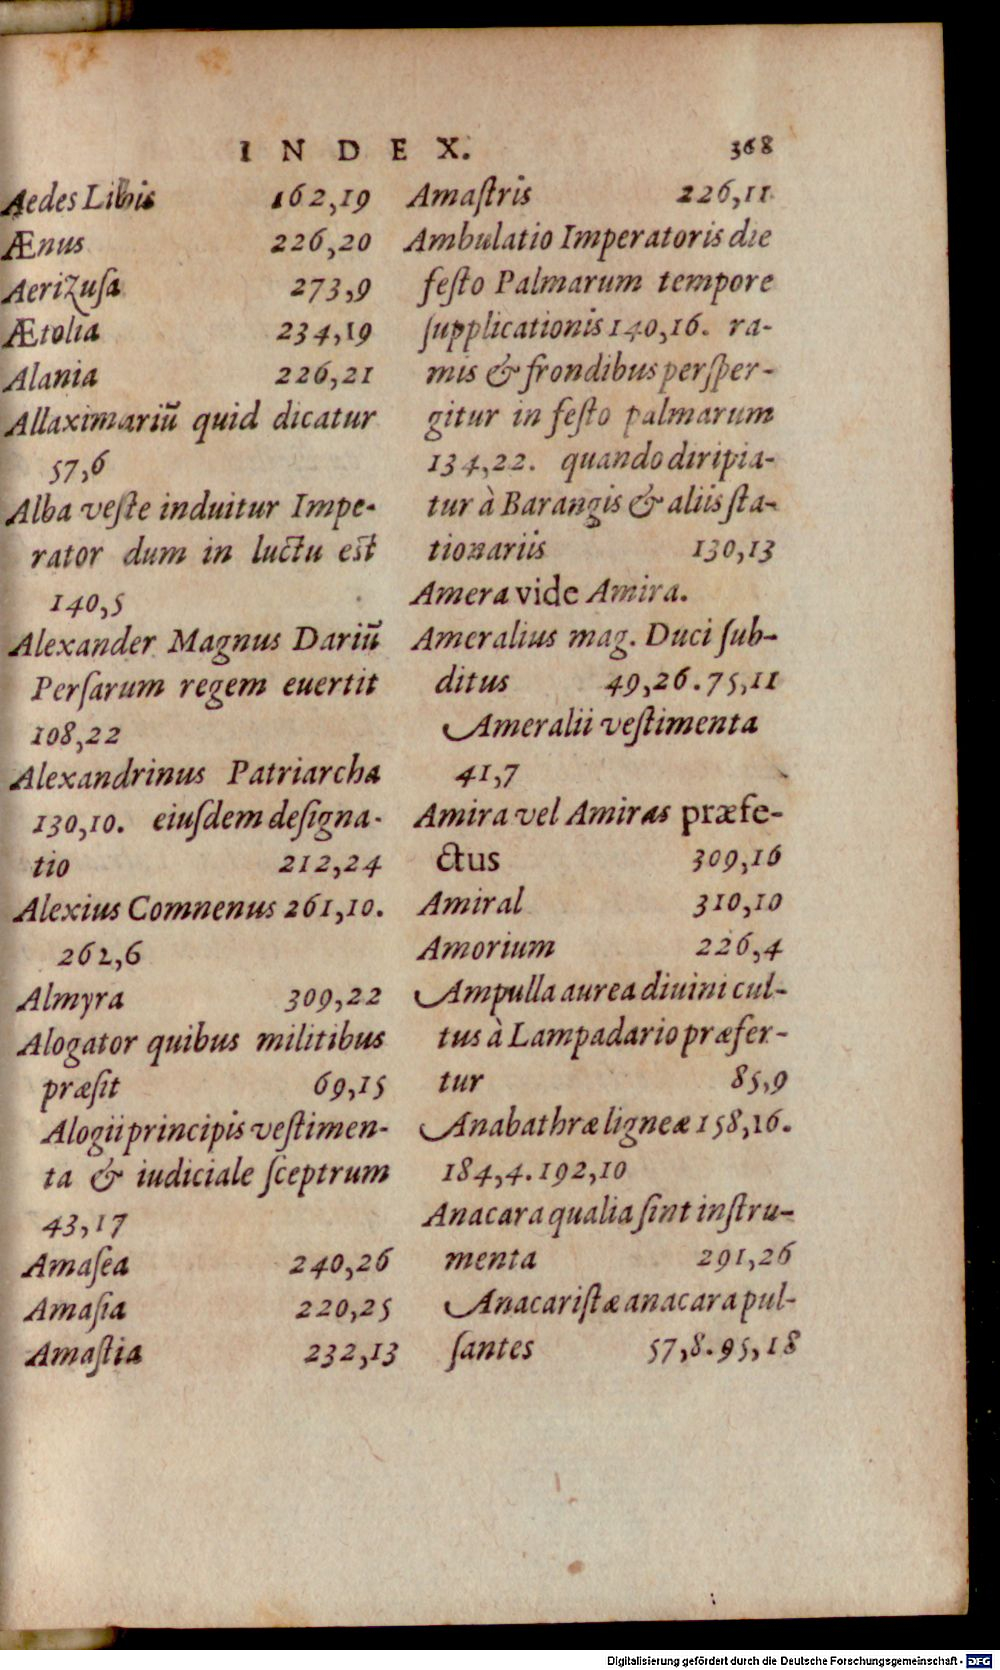 INDEX. 368
Aedes Libis 162,19
Ænus 226,20
Aerizusa 273,9
Ætolia 234,19
Alania 226,21
Allaximariū quid dicatur
57,6
Alba veſte induitur Impe-
rator dum in luctu est
140,5
Alexander Magnus Dariū
Perſarum regem euertit
108,22
Alexandrinus Patriarcha
130,10. eiuſdem deſigna-
tio 212,24
Alexius Comnenus 261,10.
262,6
Almyra 309,22
Alogator quibus militibus
præſit 69,15
Alogii principis veſtimen-
ta & iudiciale ſceptrum
43,17
Amaſea 240,26
Amaſia 220,25
Amaſtia 232,13
Amaſtris 226,11
Ambulatio Imperatoris die
feſto Palmarum tempore
ſupplicationis 140,16. ra-
mis & frondibus perſper-
gitur in feſto palmarum
134,22. quando diripia-
tur à Barangis & aliis ſta-
tionariis 130,13
Amera vide Amira.
Ameralius mag. Duci ſub-
ditus 49,26. 75,11
Ameralii veſtimenta
41,7
Amira vel Amiras præfe-
ctus 309,16
Amiral 310,10
Amorium 226,4
Ampulla aurea diuini cul-
tus à Lampadario præfer-
tur 85,9
Anabathræ ligneæ 158,16.
184,4. 192,10
Anacara qualia ſint inſtru-
menta 291,26
Anacariſtæ anacara pul-
ſantes 57,8. 95,18
Digitalisierung gefördert durch die Deutsche Forschungsgemeinschaft - DFG